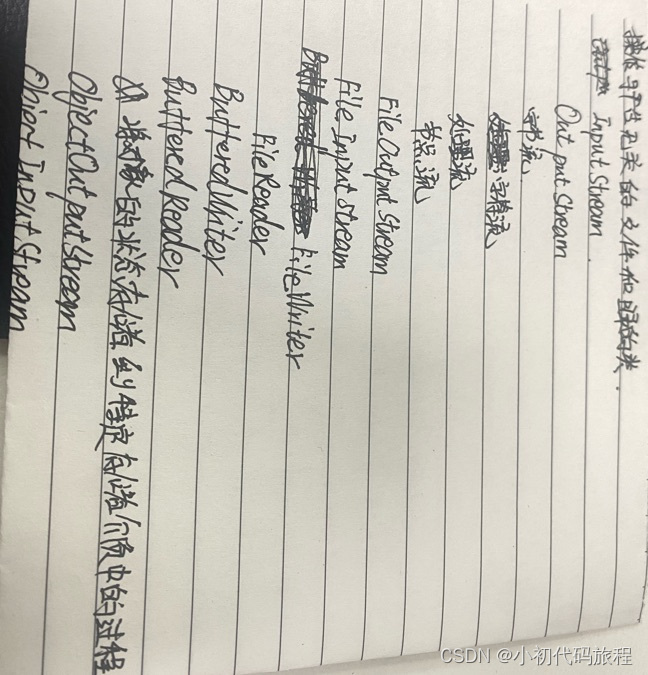 操作
的文件和目录的类.
InputStream
OutputStream
字节流
字符流
处理流
节点流
FileOutputStream
FileInputStream
FileWriter
FileReader
BufferedWriter
BufferedReader
将对象的状态存储到特定存储介质中的过程
ObjectOutputStream
ObjectInputStream
CSDN @小初代码旅程